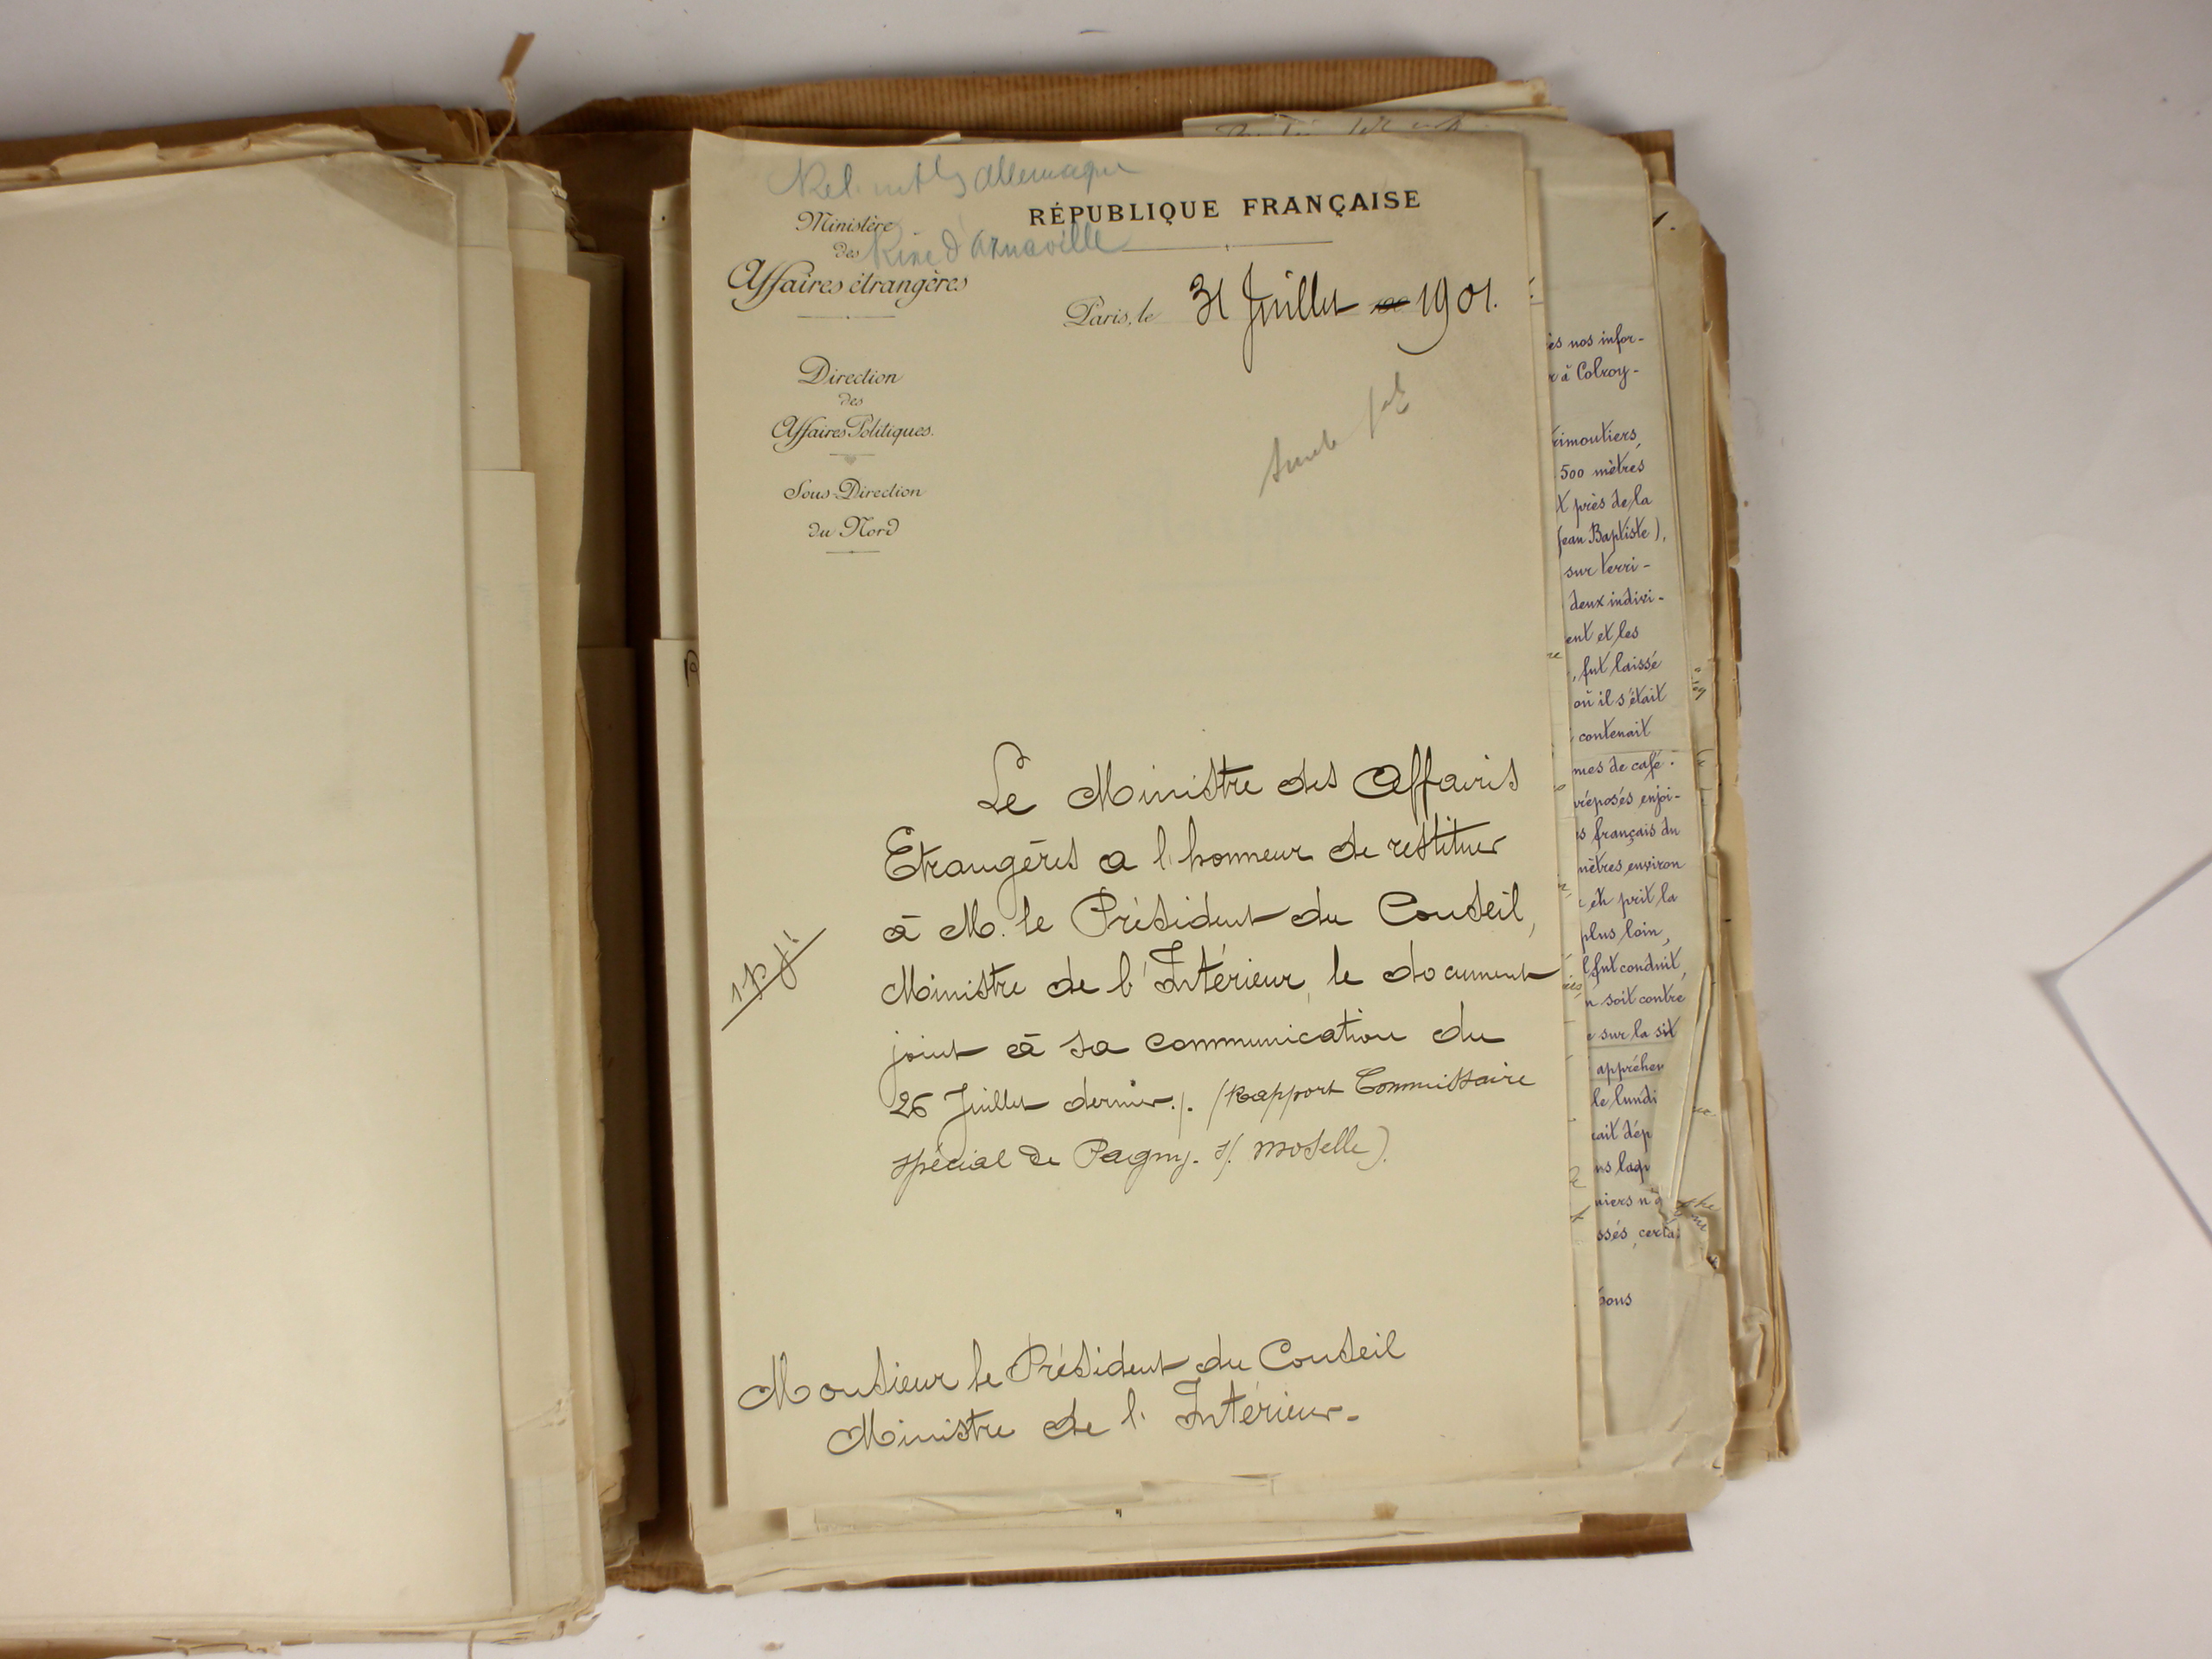 Allemagne
RÉPUBLIQUE FRANÇAISE
Ministère
des
d'Arnaville
Affaires étrangères
Paris, le 31 Juillet 1901.
Direction
des
Affaires Politiques.
Sous-Direction
du Nord
Le Ministre des Affaires
Etrangères a l'honneur de restituer
à M. le Président du Conseil,
Ministre de l'Intérieur, le document
joint à sa communication du
26 Juillet dernier./. (Rapport Commissaire
spécial de Pagny. s/. Moselle).
1 p. j.
Monsieur le Président du Conseil
Ministre de l'Intérieur.
ès nos infor-
r à Colroy-
rimoutiers,
500 mètres
t près de la
Jean Baptiste),
sur terri-
deux indivi-
ent et les
, fut laissé
où il s'était
contenait
mes de café.
réposés enjoi-
s français du
mètres environ
et prit la
plus loin,
fut conduit,
n soit contre
e sur la sit
appréhen
le lundi
rait dép
ns laqu
niers n'a
ssés, certa
bous